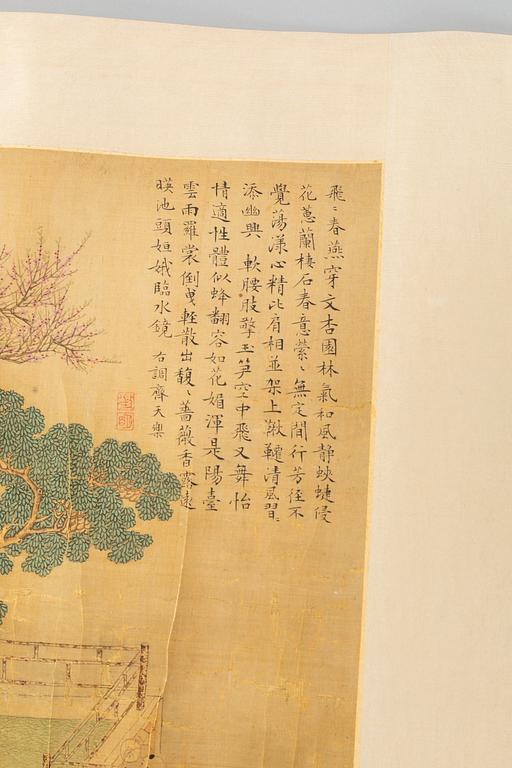 飛〻春燕穿文杏園林氣和風静蛺蝶侵
花蕙蘭棲石春意縈〻無定閒行芳徑不
覺蕩漾心精比肩相並架上鞦韆清風習〻
添幽興軟腰肢擎玉笋空中飛又舞怡
情適性體似蜂翻容如花媚渾是陽臺
雲雨羅裳倒曳輕散出馥〻薔薇香露遠
暎池頭姮娥臨水鏡 右調齊天樂